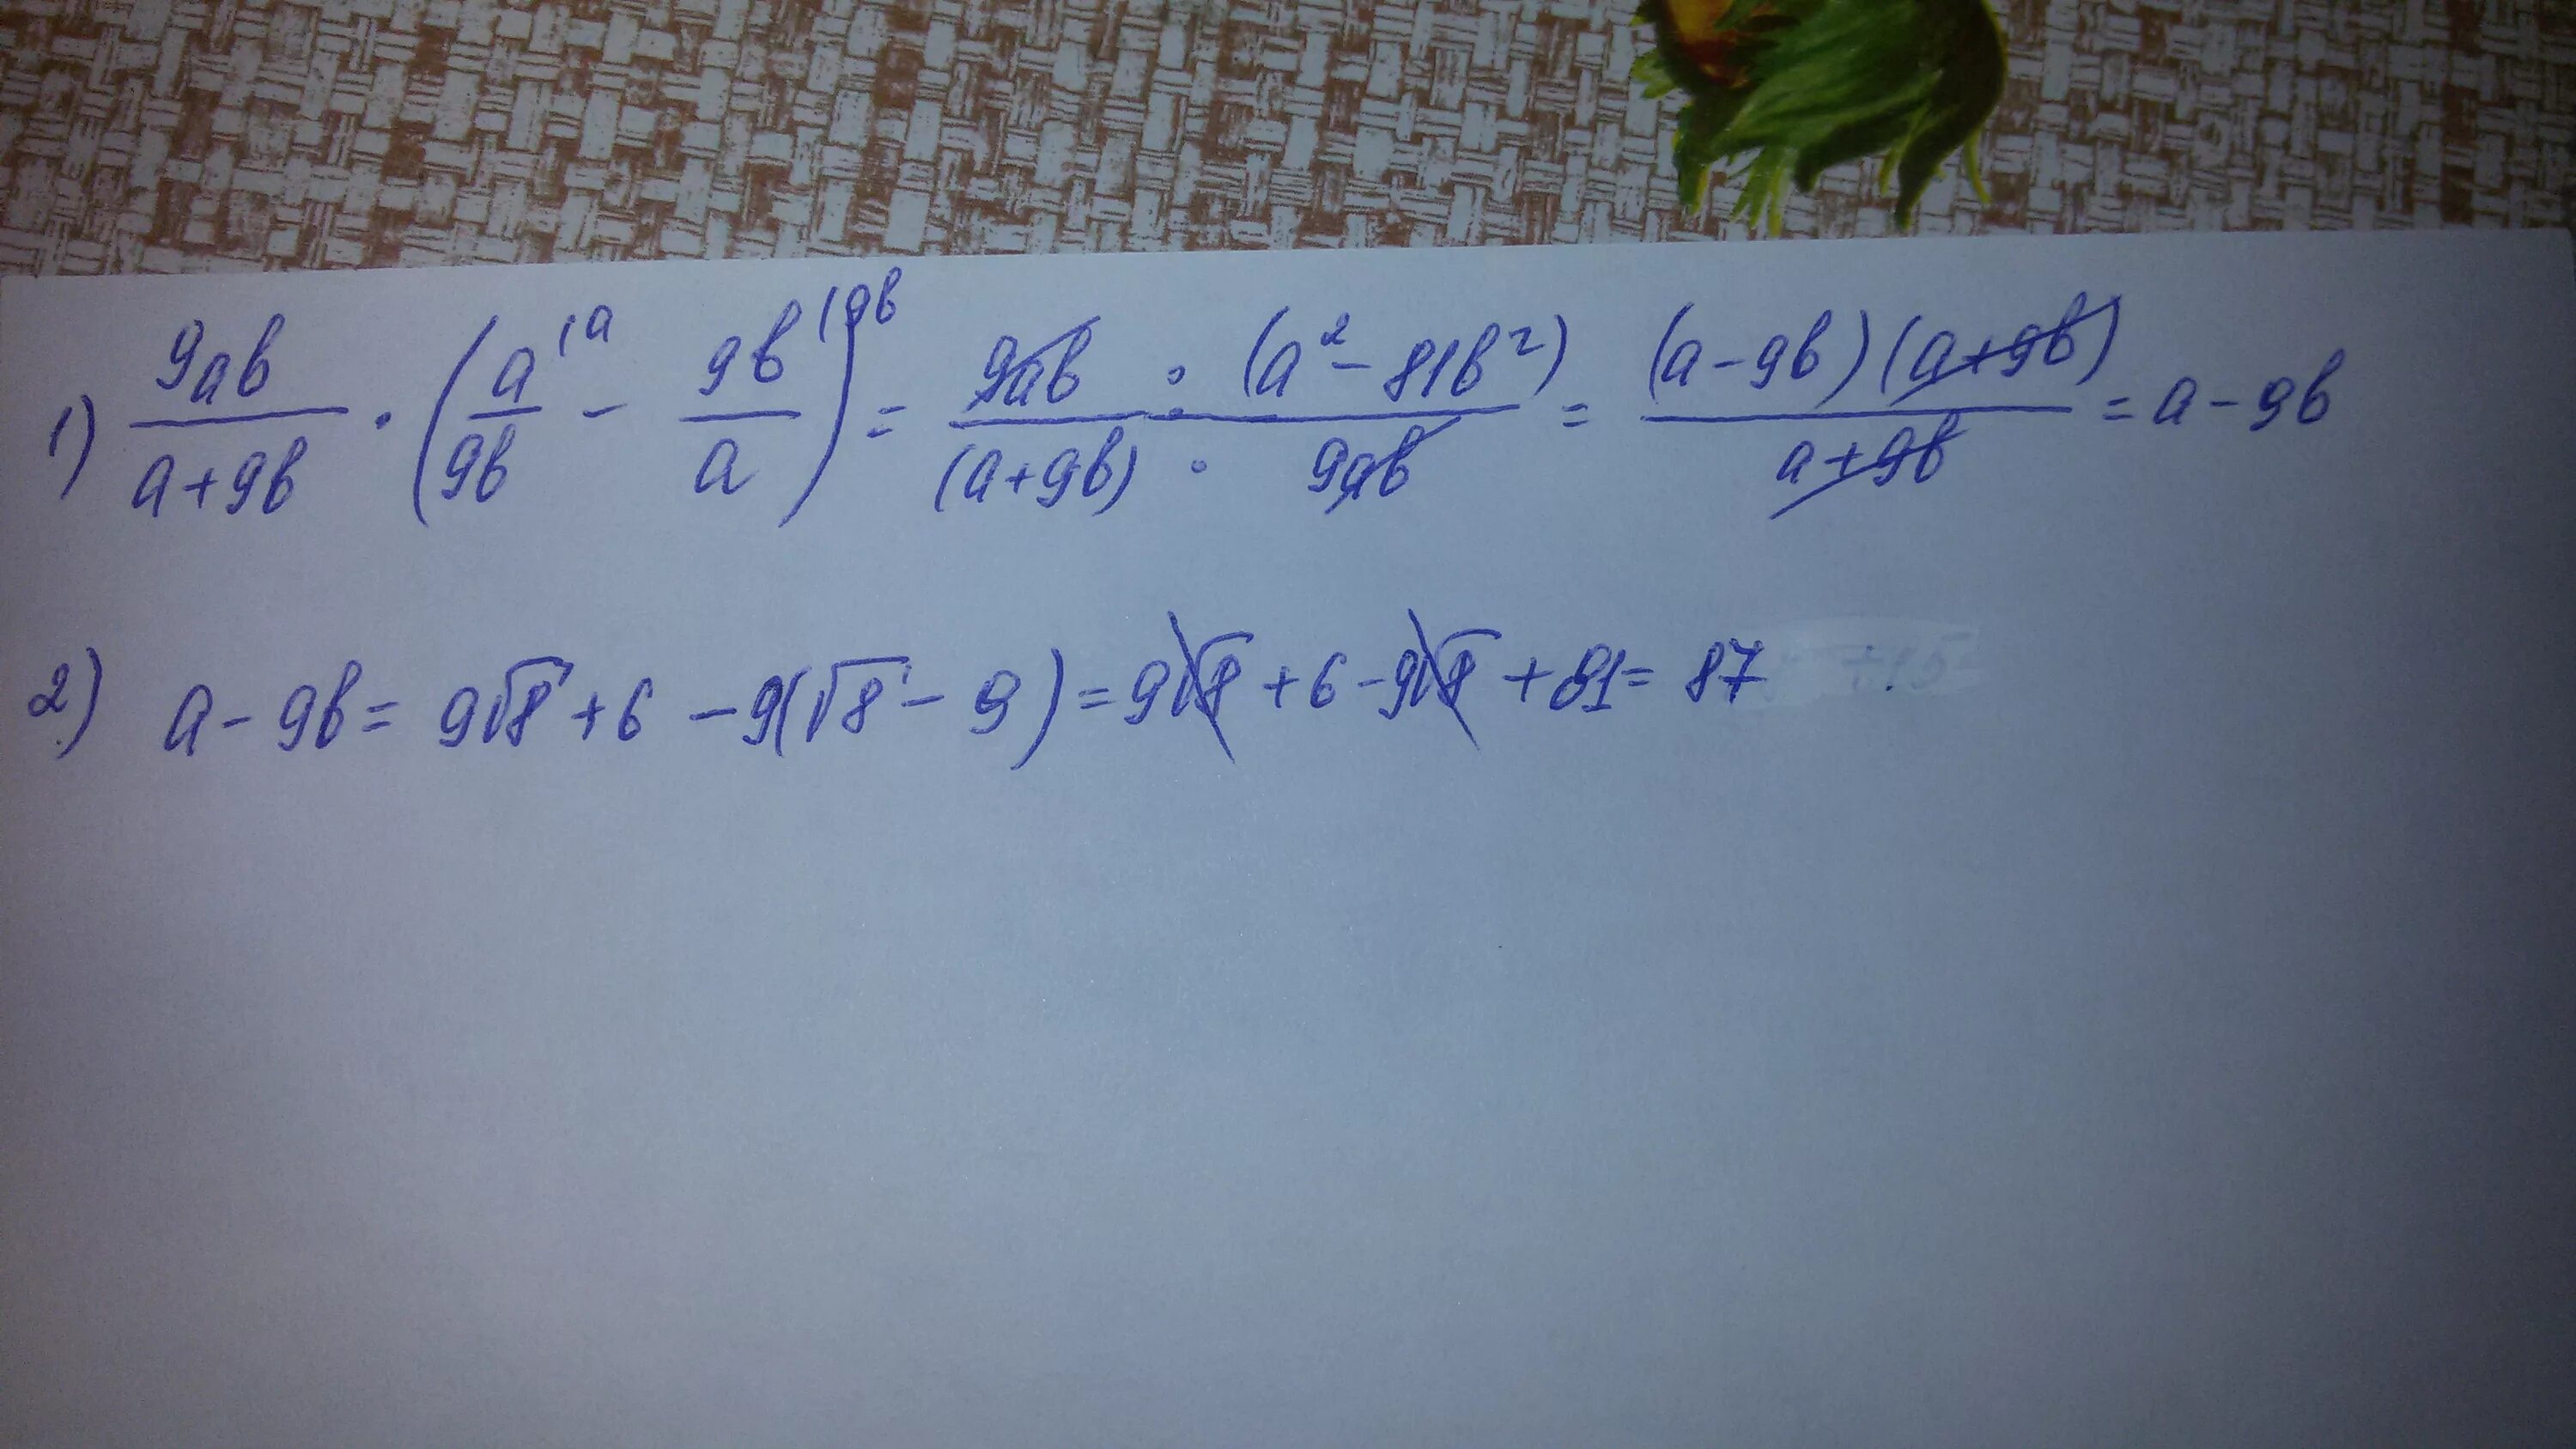 1) 9ab/(a+9b) · (a/9b |a − 9b/a |9b) = 9ab · (a² − 81b²)/((a+9b) · 9ab) = (a−9b)(a+9b)/(a+9b) = a − 9b
2) a − 9b = 9√8 + 6 − 9(√8 − 9) = 9√8 + 6 − 9√8 + 81 = 87